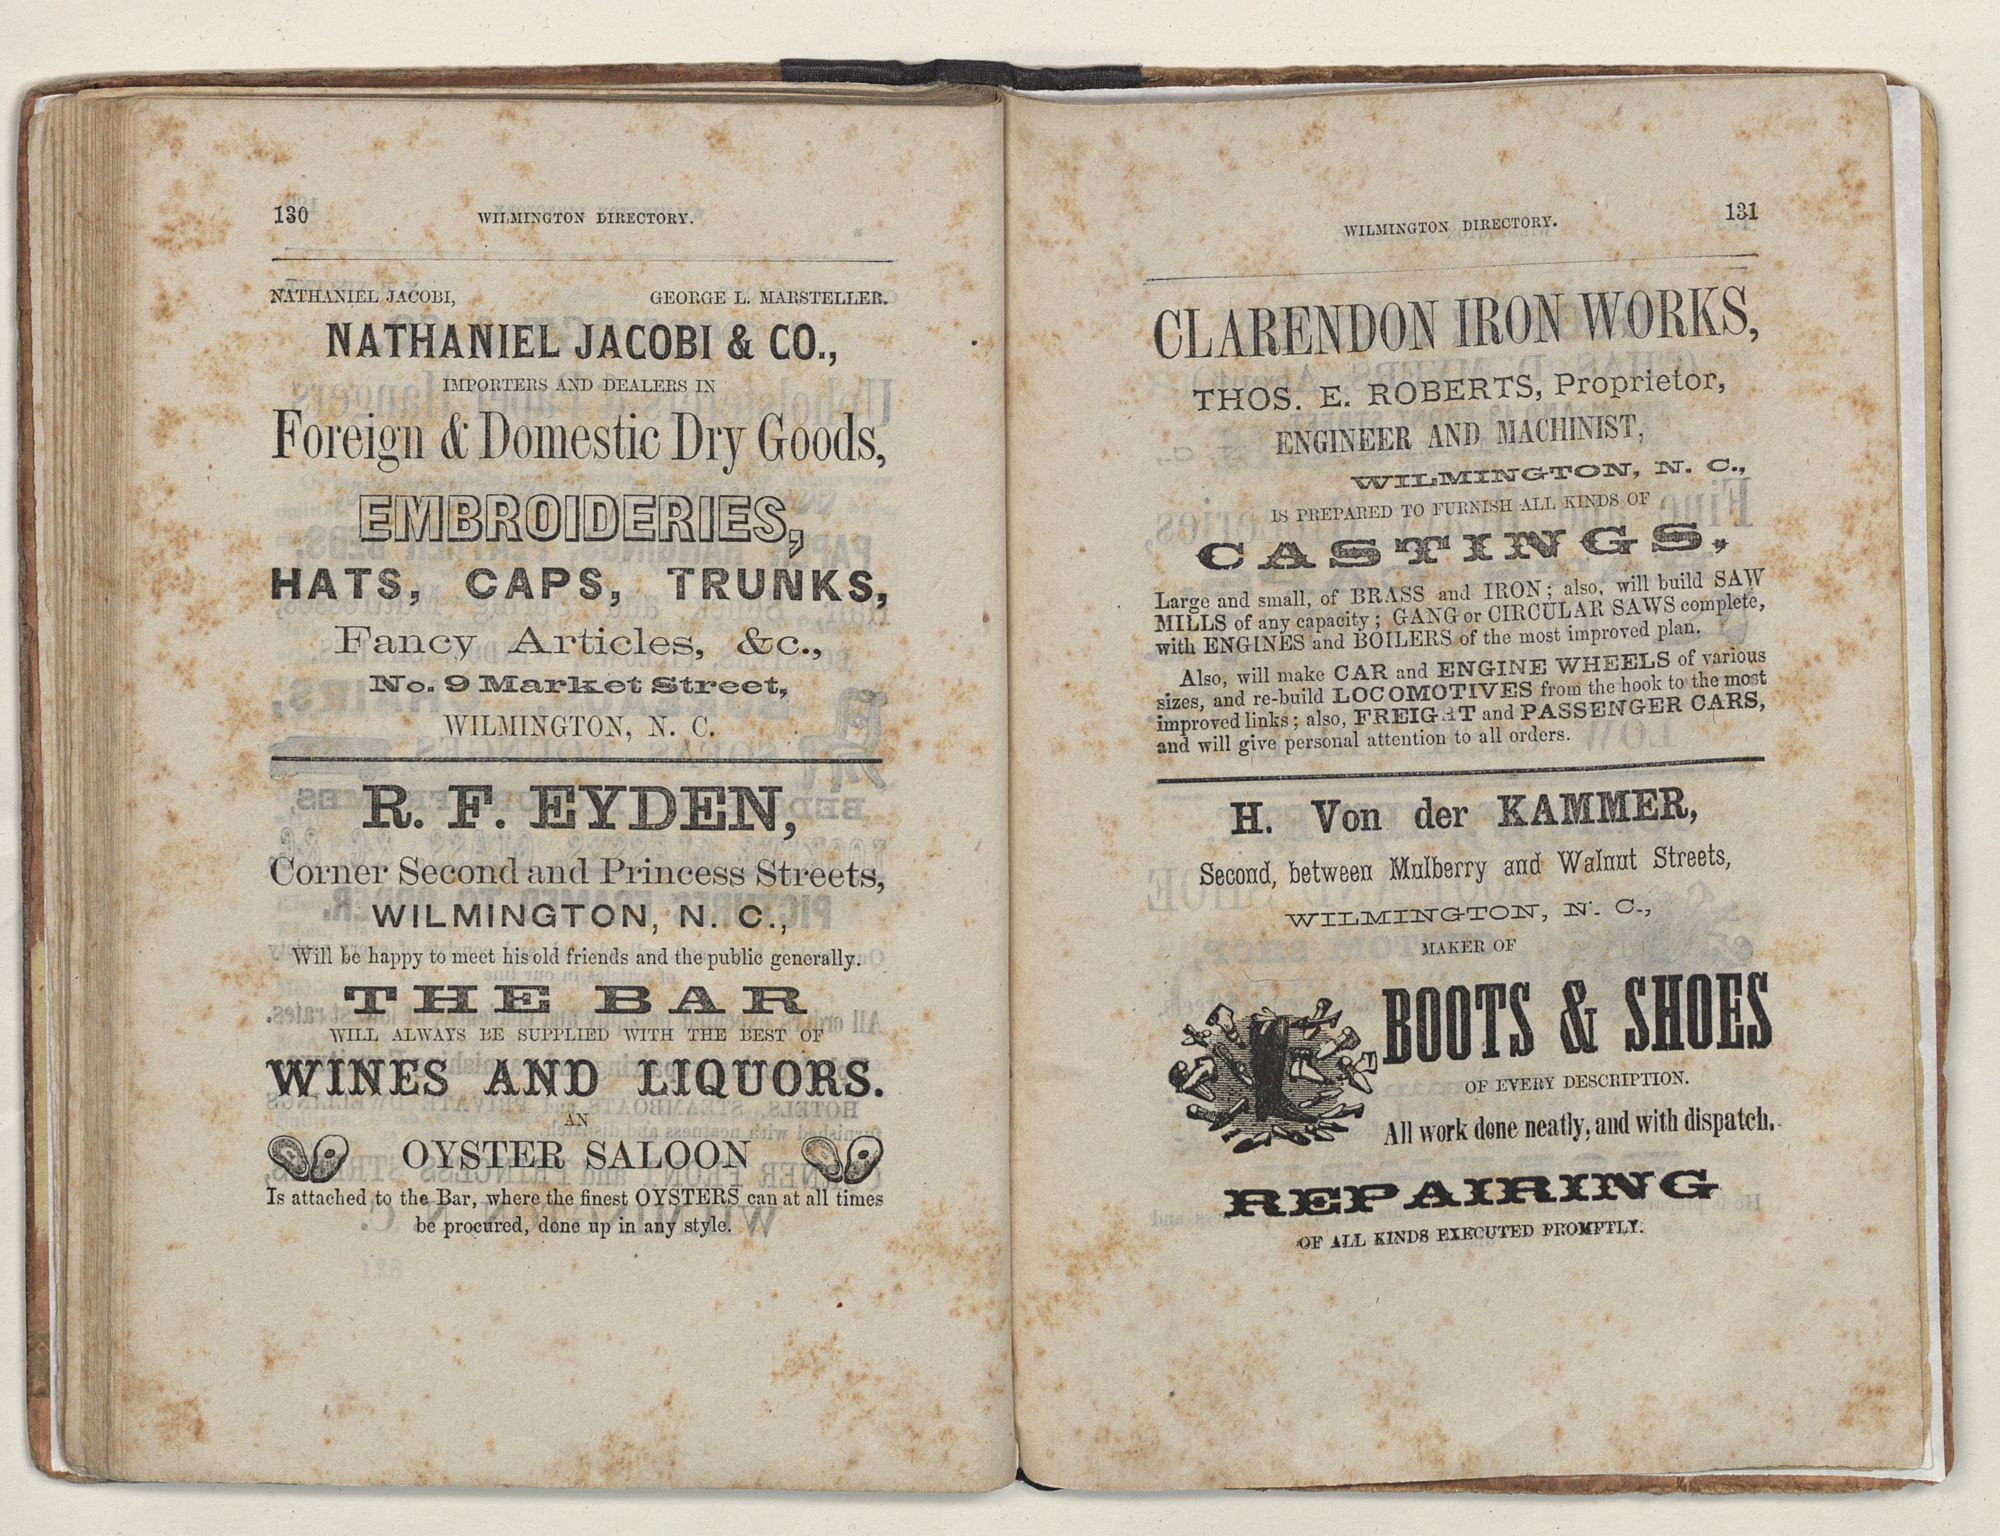 130
WILMINGTON DIRECTORY.
NATHANIEL JACOBI, GEORGE L. MARSTELLER.
NATHANIEL JACOBI & CO.,
IMPORTERS AND DEALERS IN
Foreign & Domestic Dry Goods,
EMBROIDERIES,
HATS, CAPS, TRUNKS,
Fancy Articles, &c.,
No. 9 Market Street,
WILMINGTON, N. C.
R. F. EYDEN,
Corner Second and Princess Streets,
WILMINGTON, N. C.,
Will be happy to meet his old friends and the public generally.
THE BAR
WILL ALWAYS BE SUPPLIED WITH THE BEST OF
WINES AND LIQUORS.
AN
OYSTER SALOON
Is attached to the Bar, where the finest OYSTERS can at all times
be procured, done up in any style.
WILMINGTON DIRECTORY.
131
CLARENDON IRON WORKS,
THOS. E. ROBERTS, Proprietor,
ENGINEER AND MACHINIST,
WILMINGTON, N. C.,
IS PREPARED TO FURNISH ALL KINDS OF
CASTINGS,
Large and small, of BRASS and IRON; also, will build SAW
MILLS of any capacity; GANG or CIRCULAR SAWS complete,
with ENGINES and BOILERS of the most improved plan.
Also, will make CAR and ENGINE WHEELS of various
sizes, and re-build LOCOMOTIVES from the hook to the most
improved links; also, FREIGHT and PASSENGER CARS,
and will give personal attention to all orders.
H. Von der KAMMER,
Second, between Mulberry and Walnut Streets,
WILMINGTON, N. C.,
MAKER OF
BOOTS & SHOES
OF EVERY DESCRIPTION.
All work done neatly, and with dispatch.
REPAIRING
OF ALL KINDS EXECUTED PROMPTLY.